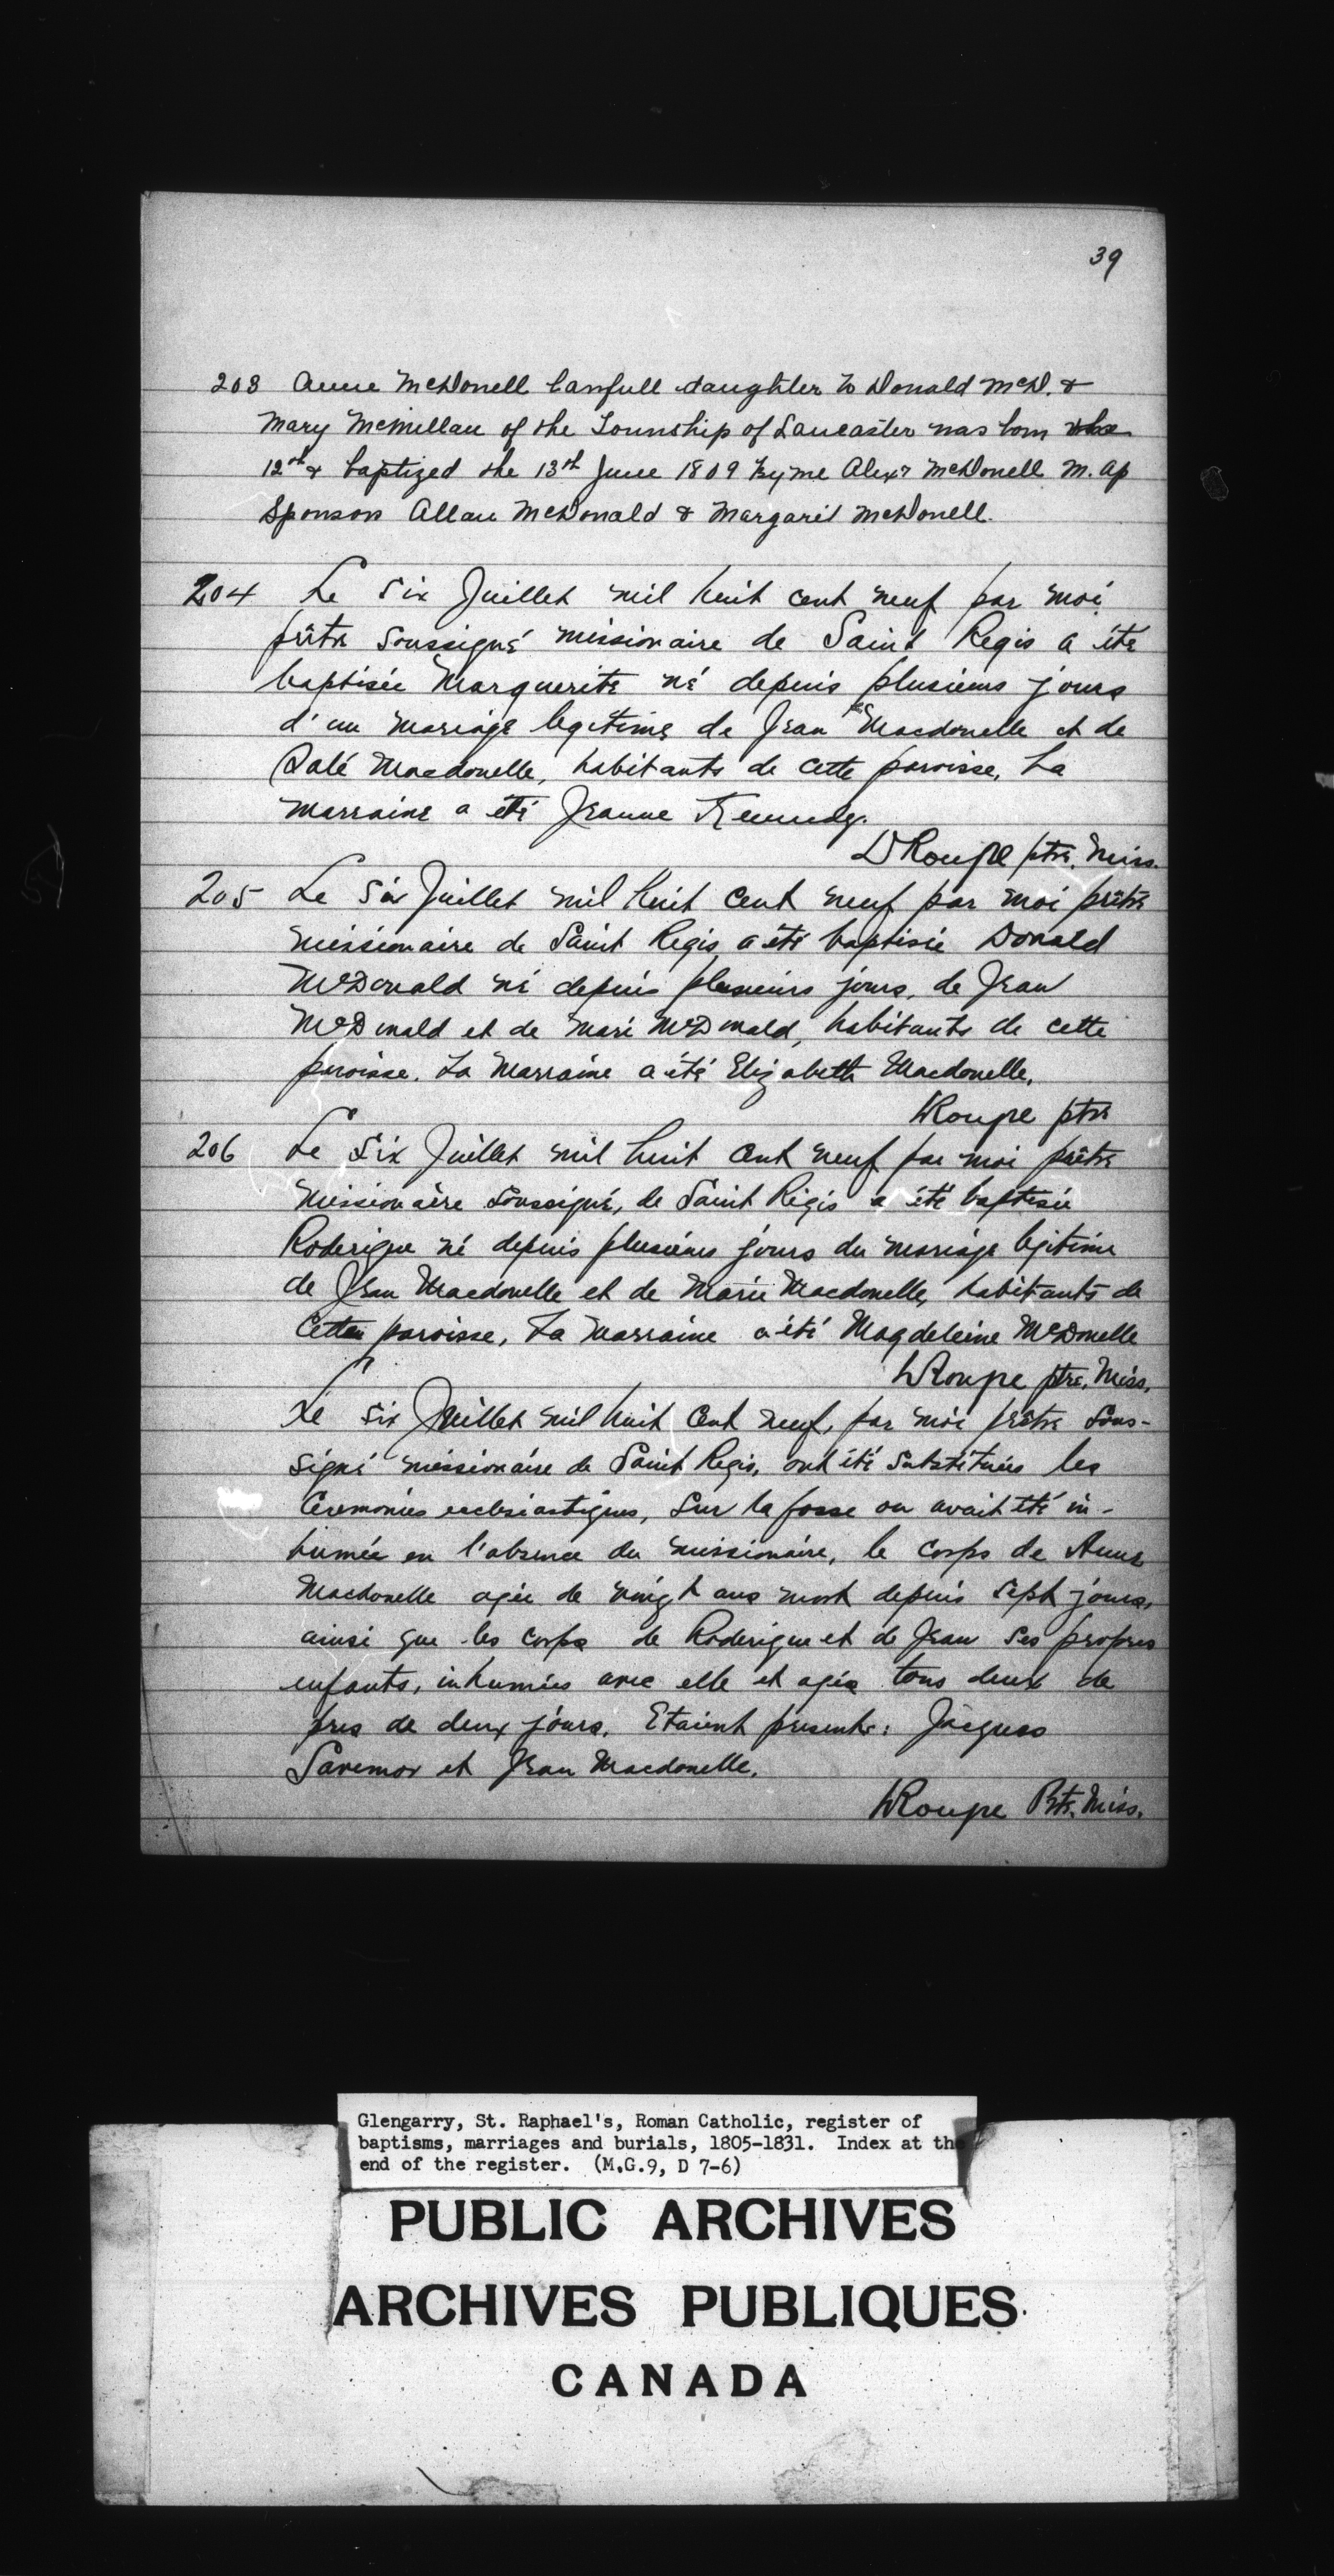 39
203 Anne McDonell lawfull daughter to Donald McD. &
Mary McMillan of the Township of Lancaster was born the
12th & baptized the 13th June 1809 by me Alexr McDonell M. Ap
Sponsors Allan McDonald & Margaret McDonell.
204 Le Six Juillet mil huit cent neuf par moi
prêtre soussigné missionaire de Saint Regis a été
baptisée Marguerite né depuis plusieurs jours
d'un mariage legitime de Jean Macdonelle et de
Macdonelle, habitants de cette paroisse, La
marraine a été Jeanne Kennedy.
LRoupe ptre. Miss.
205 Le Six Juillet mil huit cent neuf par moi prêtre
missionaire de Saint Regis a été baptisié Donald
McDonald né depuis plusieurs jours, de Jean
McDonald et de Marie McDonald, habitants de cette
paroisse. La Marraine a été Elizabeth Macdonelle.
LRoupe ptre
206 Le Six Juillet mil huit cent neuf par moi prêtre
Missionaire soussigné, de Saint Régis a été baptisée
Roderigue né depuis plusieurs jours du mariage légitime
de Jean Macdonelle et de Marie Macdonelle, habitants de
Cette paroisse, La Marraine a été Magdeleine McDonelle
LRoupe ptre. Miss.
Le Six Juillet mil huit cent neuf, par moi prêtre sous-
signé missionaire de Saint Regis, ont été substituées les
Ceremonies eclesiastiques, sur la fosse ou avait été in-
humée en l'absence du missionaire, le corps de Anne
Macdonelle agée de vingt ans mort depuis sept jours,
ainsi que les corps de Roderigue et de Jean ses propres
enfants, inhumées avec elle et agés tous deux de
pres de deux jours. Etaient présents: Jacques
et Jean Macdonelle.
LRoupe Ptr. Miss.
Glengarry, St. Raphael's, Roman Catholic, register of
baptisms, marriages and burials, 1805-1831. Index at the
end of the register. (M.G.9, D 7-6)
PUBLIC ARCHIVES
ARCHIVES PUBLIQUES
CANADA